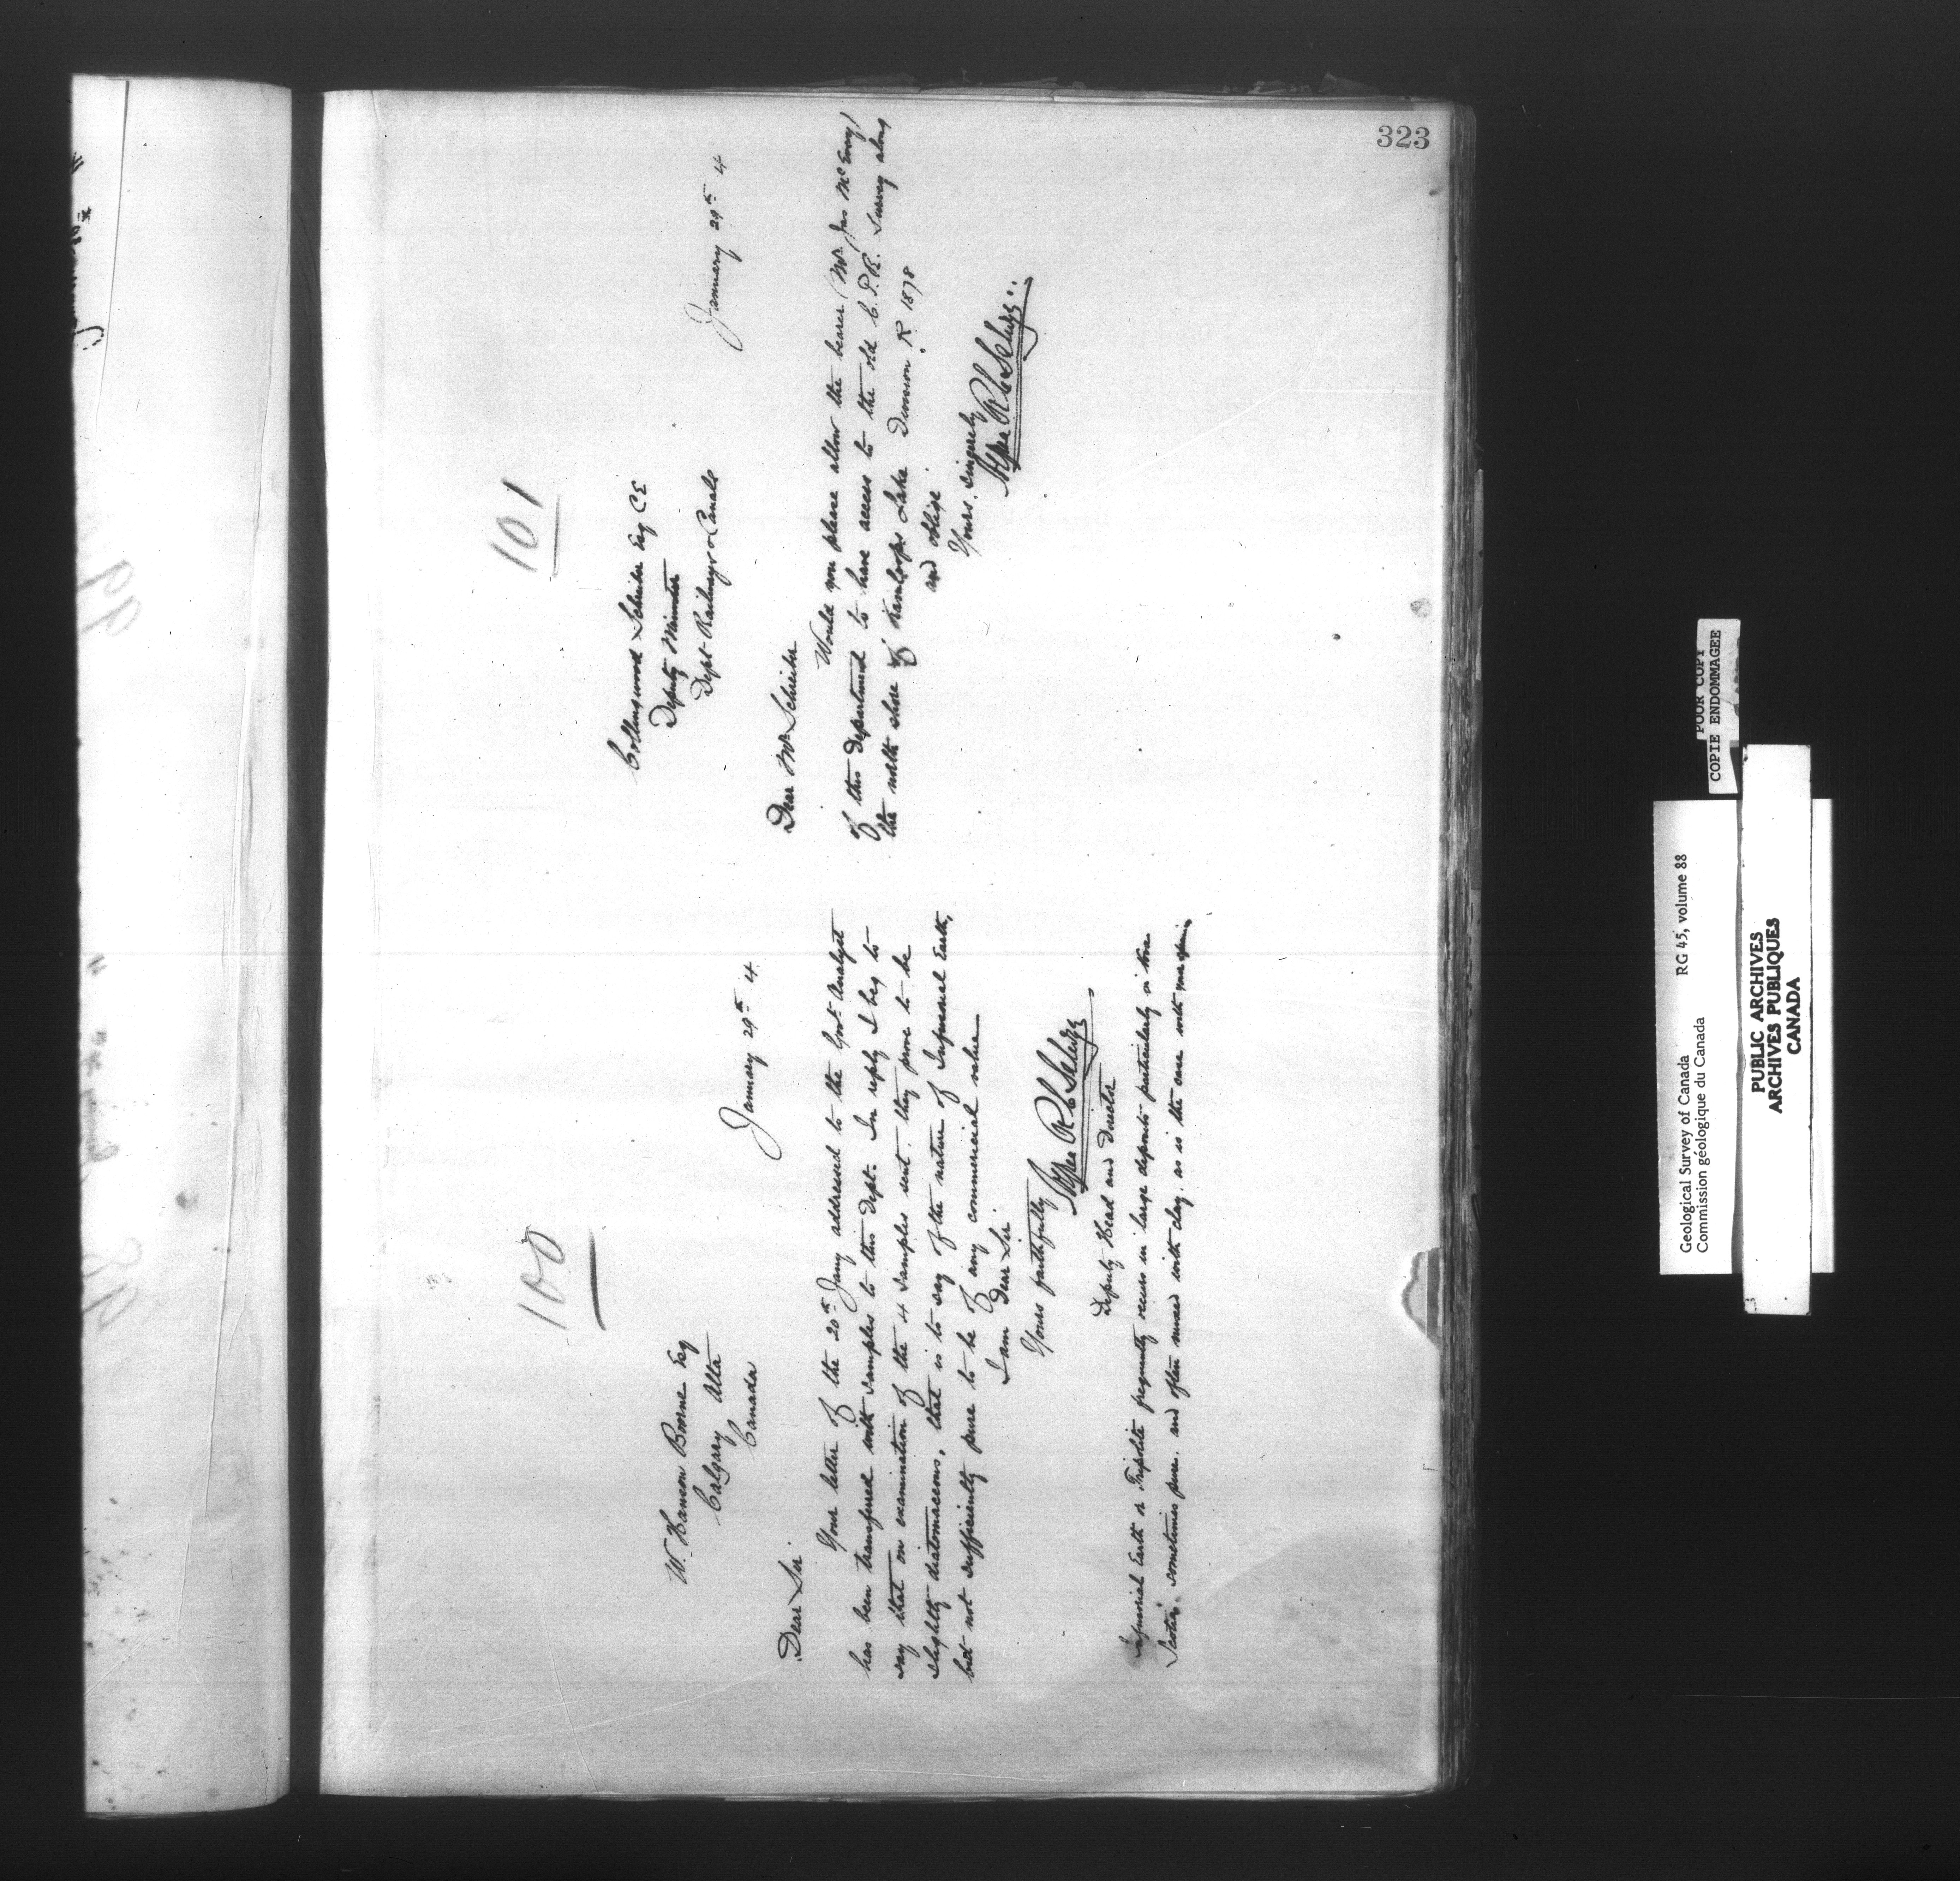 323
100
W. Hanson Boorne Esq
Calgary Alta
Canada
January 29th 4
Dear Sir
Your letter of the 20th Jany addressed to the Govt. Analyst
has been transfered with samples to this Dept. In reply I beg to
say that on examination of the 4 samples sent, they prove to be
slightly diatomaceous, that is to say of the nature of Infusorial Earth,
but not sufficiently pure to be of any commercial value
I am
Dear Sir
Yours faithfully
Deputy Head and Director
Infusorial Earth or Tripolite frequently occurs in large deposits particularly in Nova
Scotia. sometimes pure. and often mixed with clay. as is the case with
101
Collingwood Schreiber Esq CE
Deputy Minister
Dept Railways & Canals
January 29th 4
Dear Mr Schreiber
Would you please allow the bearer (Mr. Jas McEvoy)
of this Department to have access to the old C.P.R. Survey along
the north shore of Kamloops Lake R 1878
and oblige
Yours. Sincerely
Geological Survey of Canada RG 45, volume 88
Commission géologique du Canada
POOR COPY
COPIE ENDOMMAGEE
PUBLIC ARCHIVES
ARCHIVES PUBLIQUES
CANADA